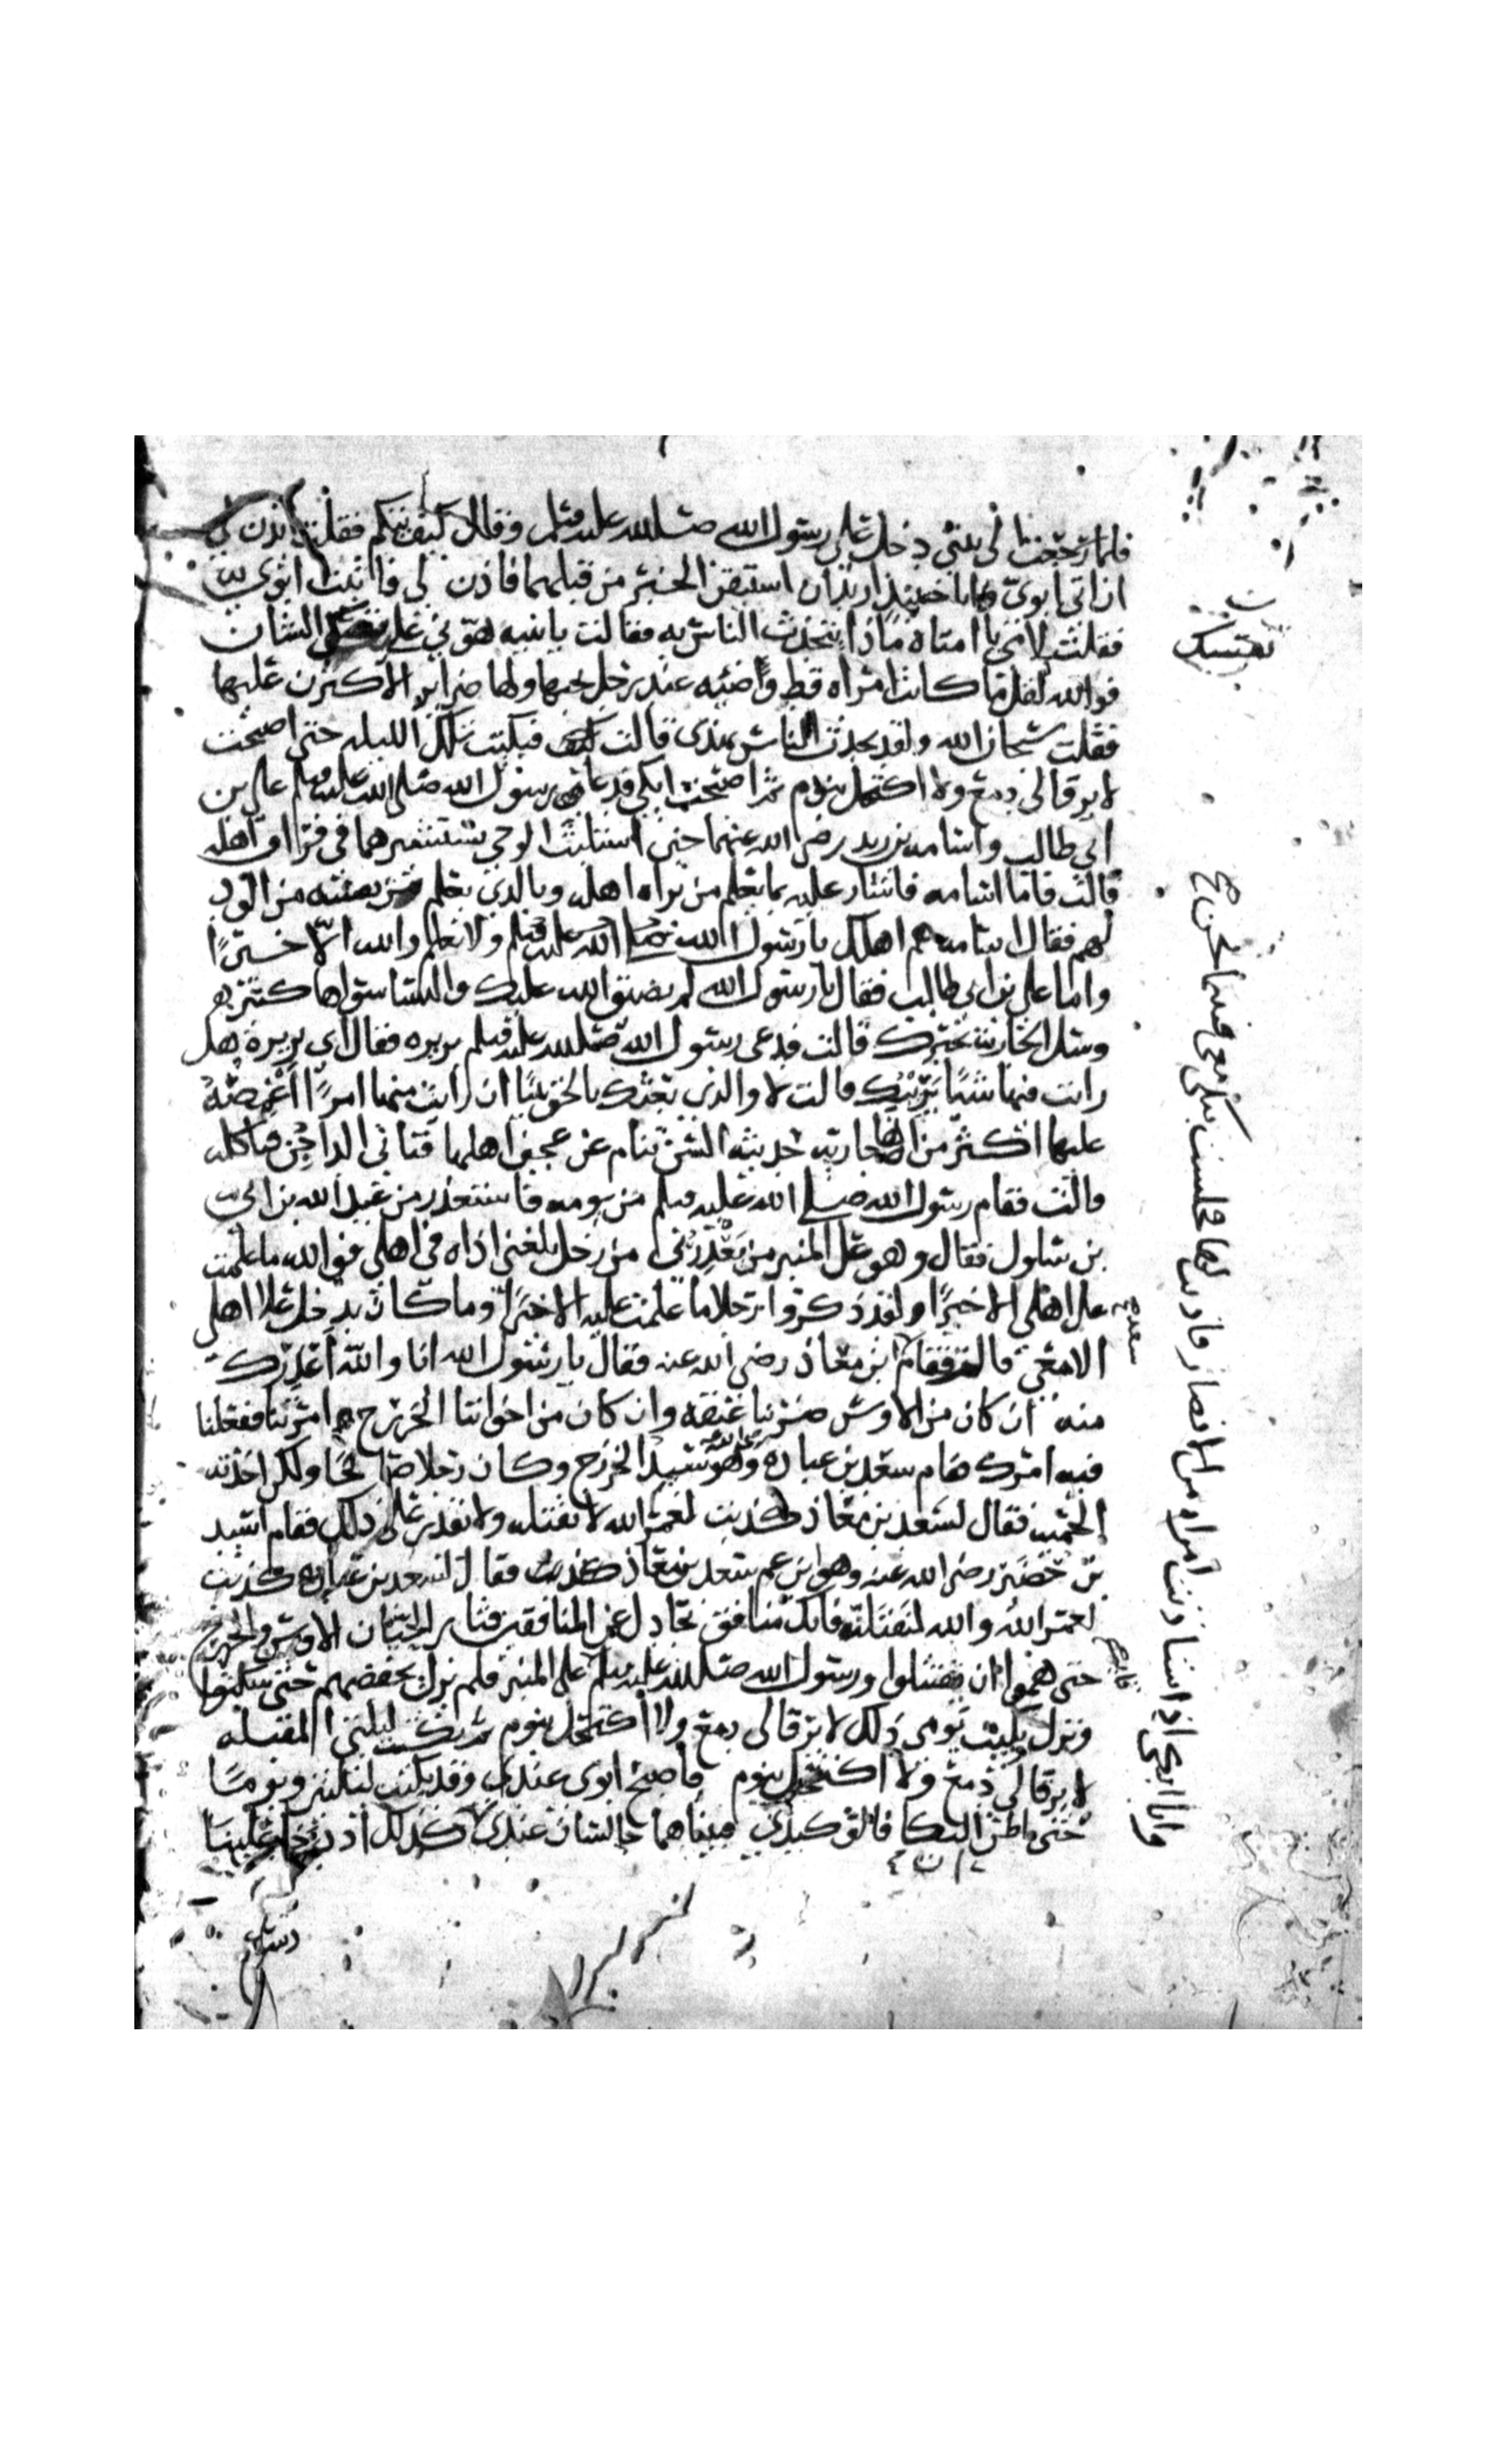 فلما رجعت الى بيتي دخل علي رسول الله صلى الله عليه وسلم وقال كيف تيكم فقلت ائذن لي
ان اتي ابوي وانا حينئذ اريد ان استيقن الخبر من قبلهما فاذن لي فاتيت ابوي
فقلت لامي يا امتاه ماذا يتحدث الناس به فقالت يا بنيه هوني على الشان
فوالله لقل ما كانت امراه قط وضئيه عند رجل يحبها ولها ضراير الا اكثرن عليها
فقلت سبحان الله ولقد يحدث الناس بهذى قالت فبكيت تلك الليله حتى اصبحت
لا يرقا لي دمع ولا اكتحل بنوم ثم اصبحت ابكي فدعا رسول الله صلى الله عليه وسلم علي بن
ابي طالب واسامه بن زيد رضى الله عنهما حين استلبث الوحي يستشيرهما في فراق اهله
قالت فاما اسامه فاشار عليه بما يعلم من براه اهله وبالذي يعلم من الود
لهم فقال اسامه هم اهلك يا رسول الله صلى الله عليه وسلم ولا نعلم والله الا خيرًا
واما علي بن ابي طالب فقال يا رسول الله لم يضيق الله عليك والنسا سواها كثير
وسل الجاريه تخبرك قالت فدعى رسول الله صلى الله عليه وسلم بريره فقال اي بريرة هل
رايت فيها شيًا يريبك قالت لا والذي بعثك بالحق نبيًا ان رايت منها امرًا اغمصُهُ
عليها اكثر من انها جاريه حديثه السن تنام عن عجين اهلها فتاتي الداجن فتاكله
قالت فقام رسول الله صلى الله عليه وسلم من يومه فاستعذر من عبد الله بن ابي
بن سلول فقال وهو على المنبر من يَعْذِرُني من رجل بلغني اذاه في اهلي فوالله ما علمت
على اهلي الا خيرًا ولقد ذكروا رجلا ما علمت عليه الا خيرًا وما كان يدخل على اهلي
الا معي قالت فقام ابن معاذ رضى الله عنه فقال يا رسول الله انا والله اعذرك
سعد
منه ان كان من الاوس ضربنا عنقه وان كان من اخواننا الخزرج امرتنا ففعلنا
فيه امرك فقام سعد بن عباده وهو سيد الخزرج وكان رجلا صالحًا ولكن اخذته
الحميه فقال لسعد بن معاذ كذبت لعمر الله لا تقتله ولا تقدر على ذلك فقام اسيد
بن حُضَير رضى الله عنه وهو ابن عم سعد بن معاذ فقال لسعد بن عباده كذبت
لعمر الله والله لنقتلنه فانك منافق تجادل عن المنافقين فثار الحيان الاوس والخزرج
حتى هموا ان يقتتلوا ورسول الله صلى الله عليه وسلم على المنبر فلم يزل يخفضهم حتى سكتوا
ونزل وبكيت يومي ذلك لا يرقا لي دمع ولا اكتحل بنوم ثم بكيت ليلتي المقبله
لا يرقا لي دمع ولا اكتحل بنوم فاصبح ابوى عندي وقد بكيت ليلتين ويومًا
حتى اظن البكا فالق كبدي فبيناهما جالسان عندي كذلك اذ دخل علينا
وانا ابكي اذ استاذنت امراه من الانصار فاذنت لها فجلست تبكي معي فبينا نحن
رسول